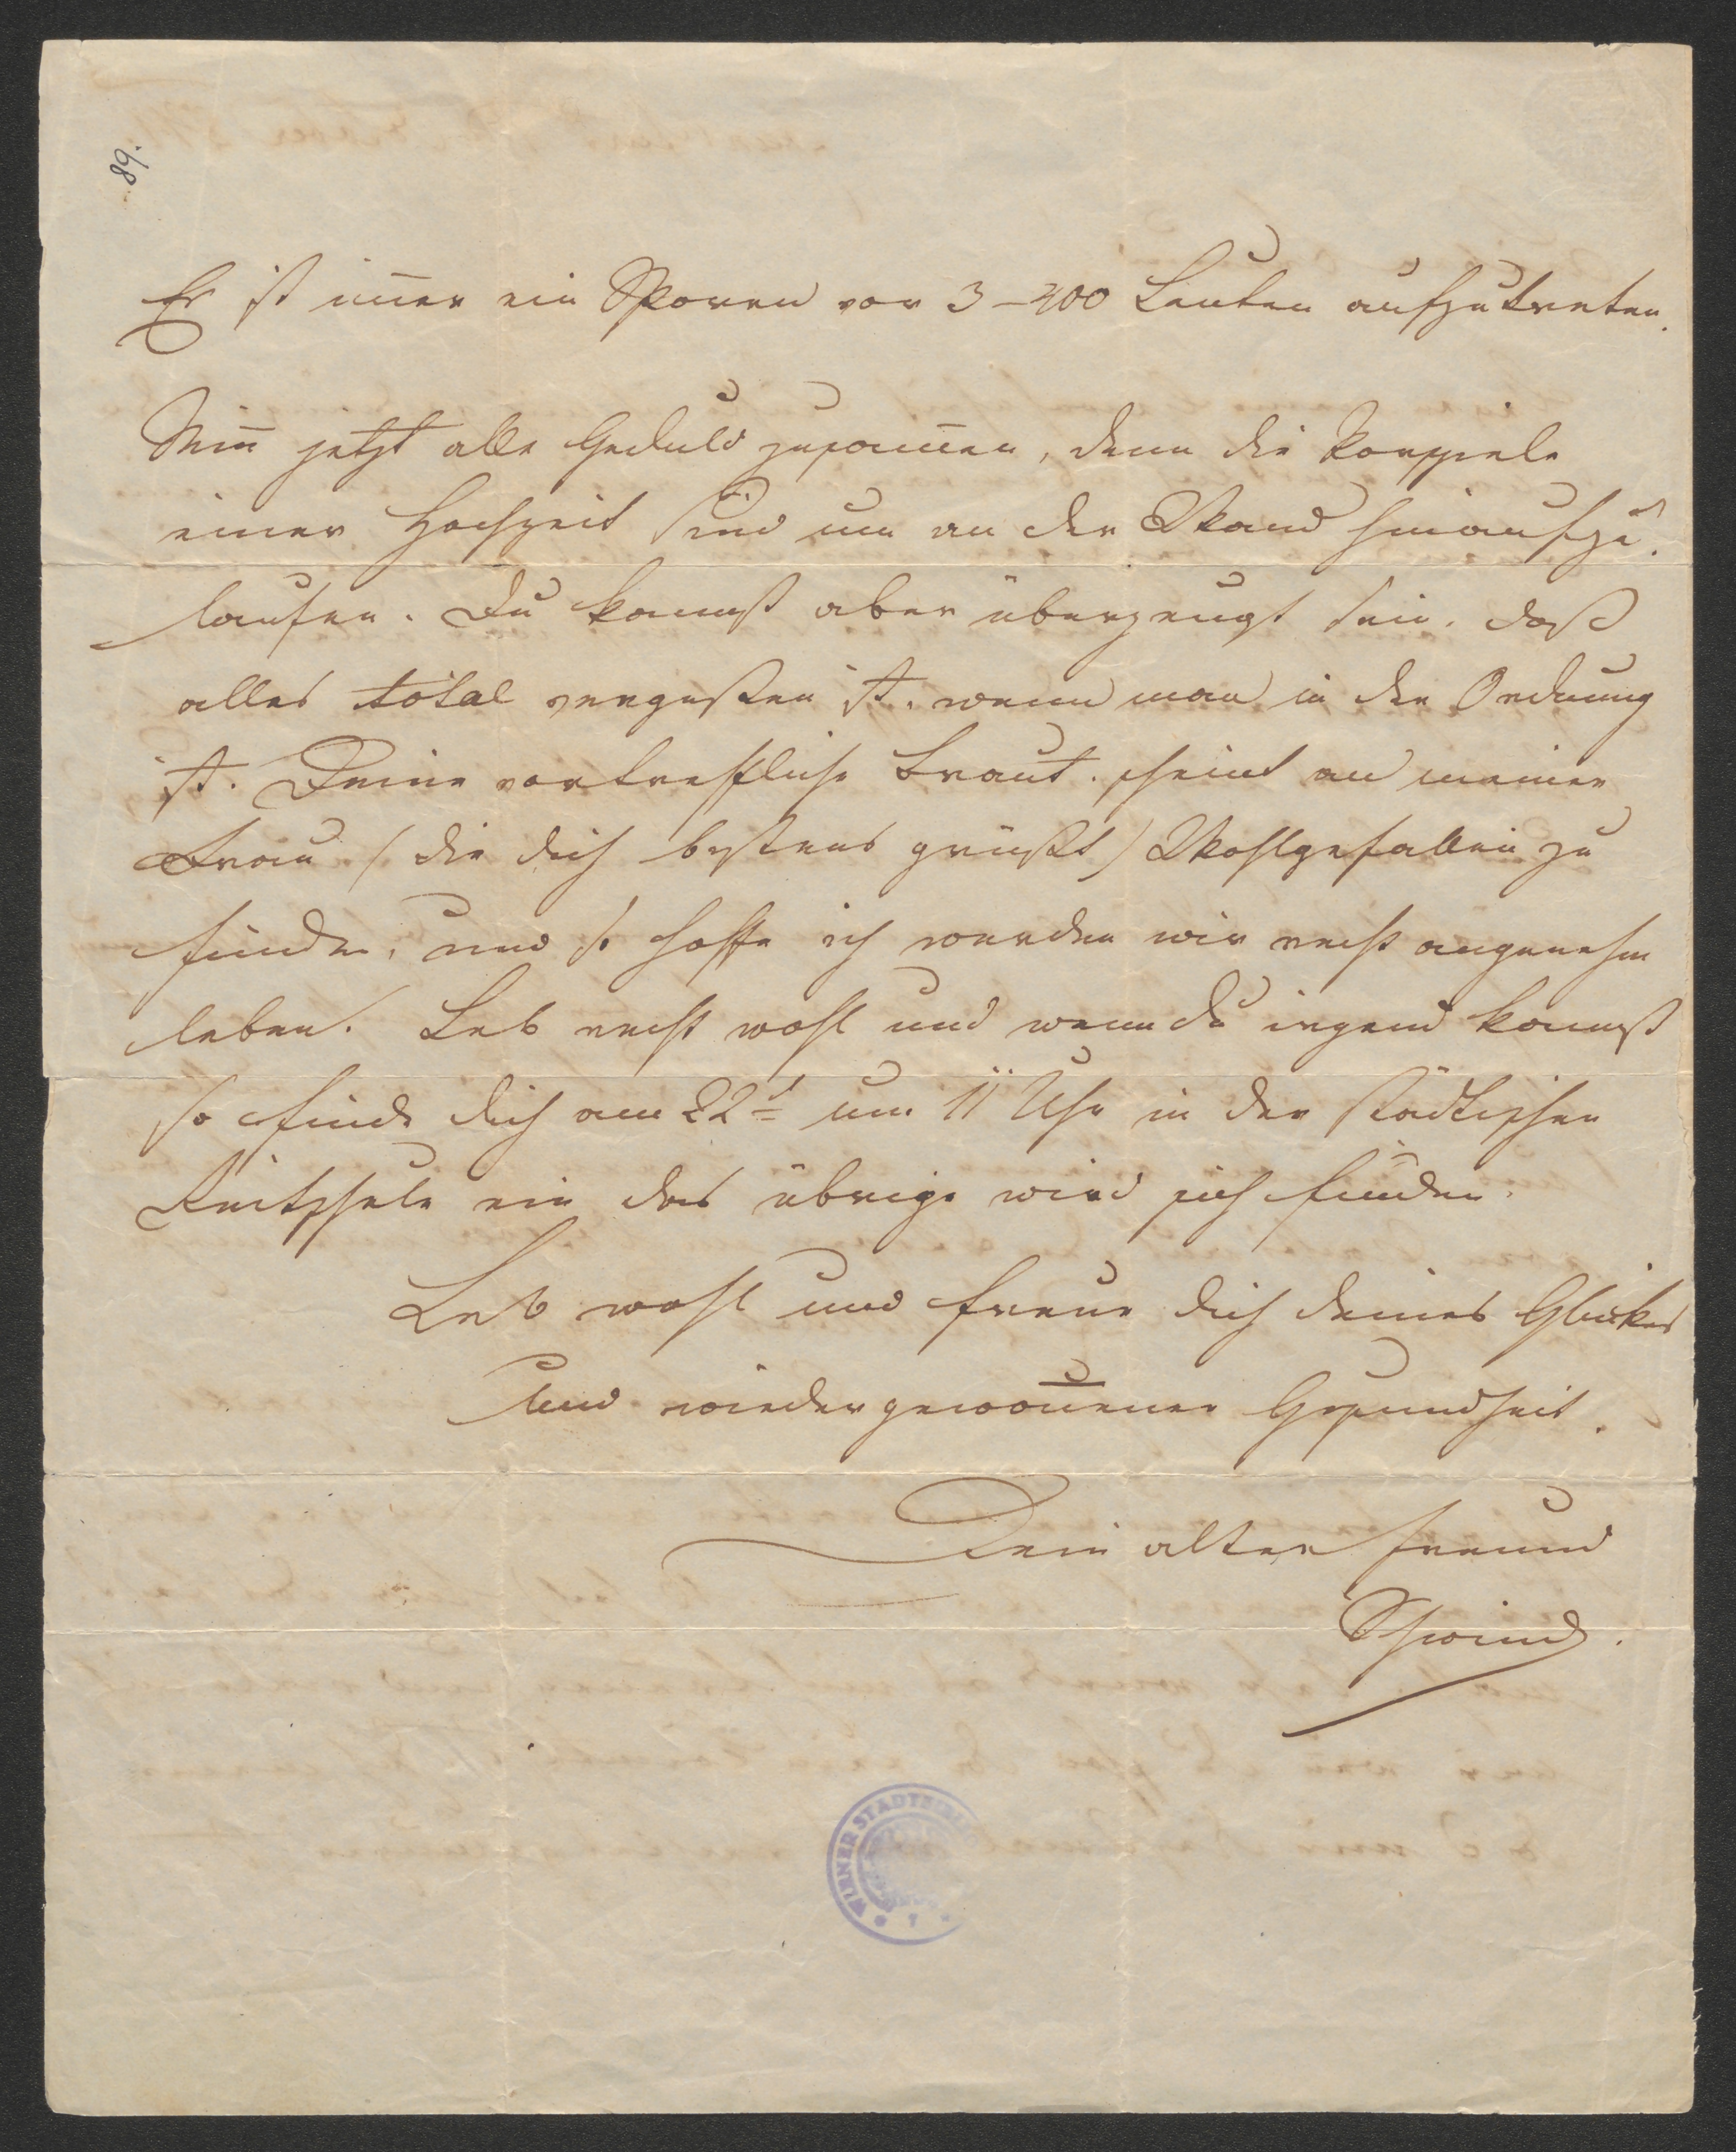 89.
Es ist im̅er ein Sporen vor 3–400 Leuten aufzutreten.
Nim̅ jetzt alle Geduld zusam̅en, denn die Vorspiele
einer Hochzeit sind um an der Wand hinaufzu-
laufen. Du kannst aber überzeugt sein, daß
alles total vergeßen ist, wenn man in der Ordnung
ist. Deine vortreffliche Braut scheint an meiner
Frau (die dich bestens grüßt) Wohlgefallen zu
finden, und so hoffe ich werden wir recht angenehm
leben. Leb recht wohl und wenn du irgend kannst
so finde dich am 22t um 11 Uhr in der städtischen
Reitschule ein das übrige wird sich finden.
Leb wohl und freue dich deines Glückes
und wiedergewon̅ener Gesundheit.
Dein alter Freund
Schwind.
WIENER STADTBIBL